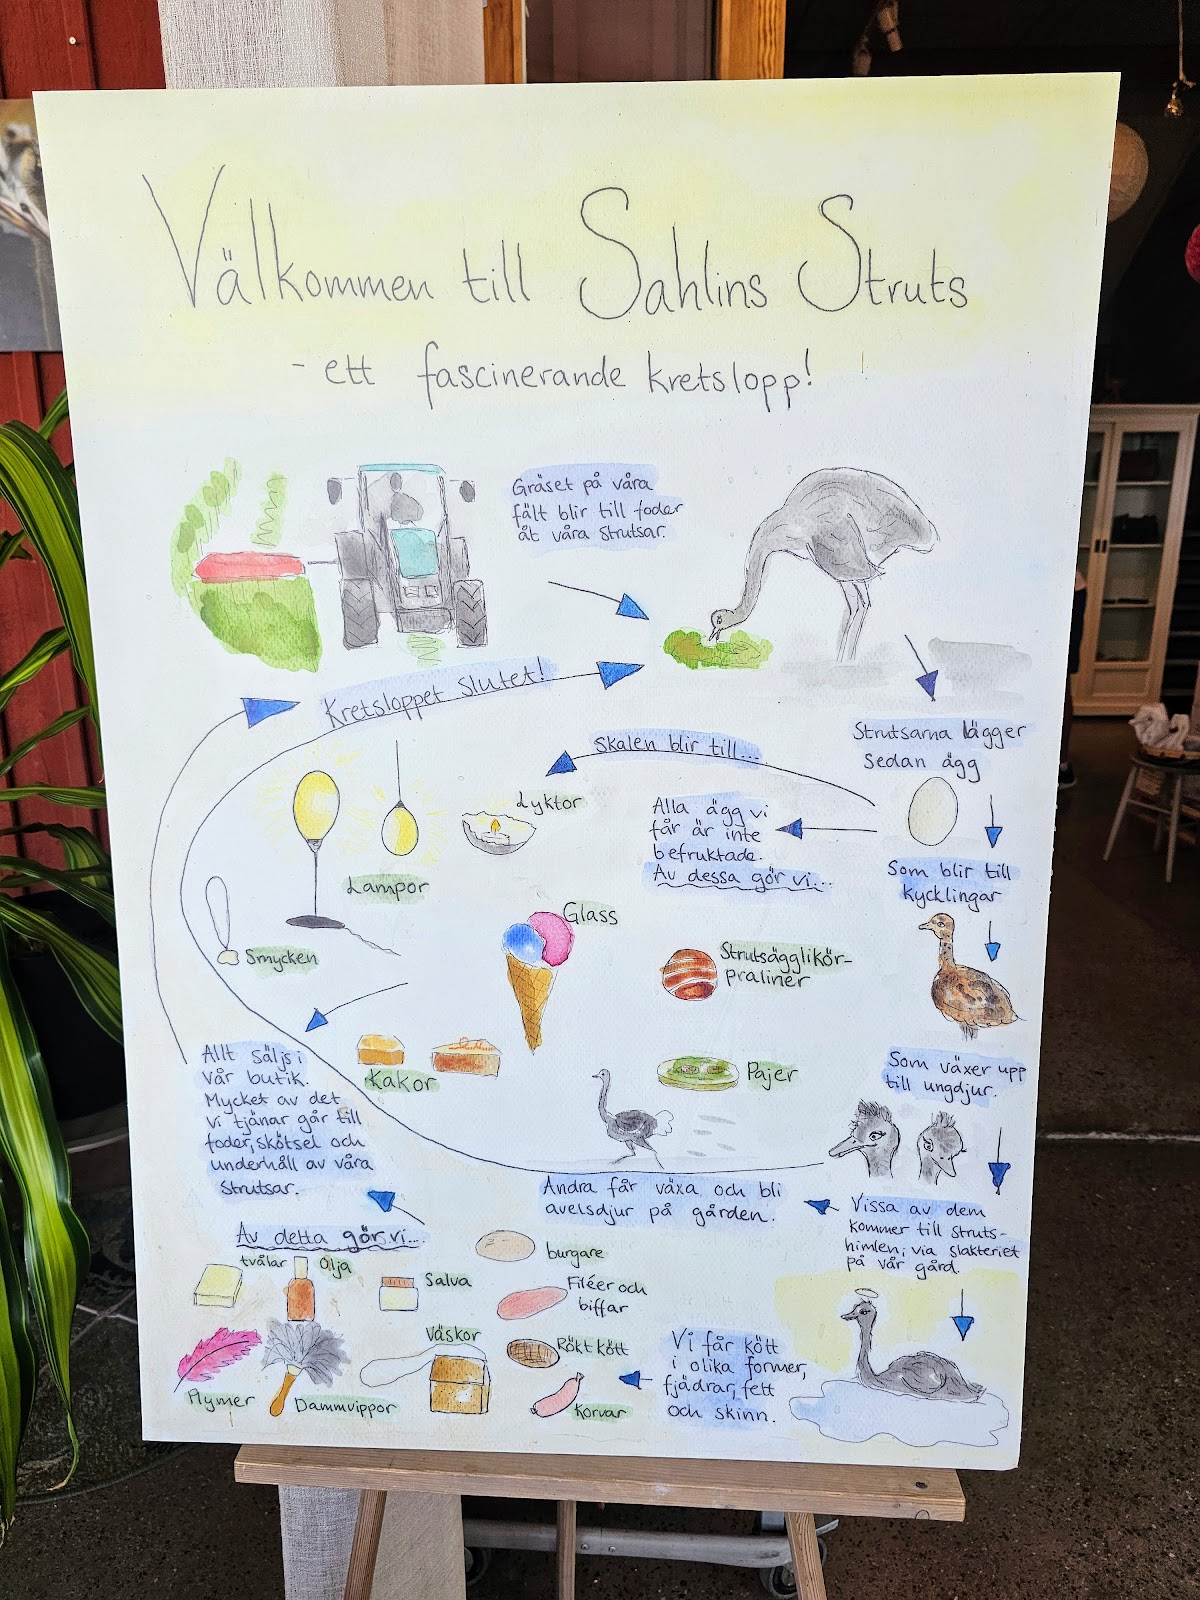 Välkommen till Sahlins Struts
- ett fascinerande kretslopp!
Gräset på våra
fält blir till foder
åt våra strutsar.
Kretsloppet slutet!
Strutsarna lägger
sedan ägg
Skalen blir till...
Lyktor
Lampor
Smycken
Alla ägg vi
får är inte
befruktade.
Av dessa gör vi...
Som blir till
kycklingar
Glass
Strutsägglikör-
praliner
Kakor
Pajer
Som växer upp
till ungdjur.
Allt säljs i
vår butik.
Mycket av det
vi tjänar går till
foder, skötsel och
underhåll av våra
strutsar.
Andra får växa och bli
avelsdjur på gården.
Vissa av dem
kommer till struts-
himlen, via slakteriet
på vår gård.
Av detta gör vi...
tvålar
Olja
Salva
burgare
Filéer och
biffar
Väskor
Rökt kött
Plymer
Dammvippor
Korvar
Vi får kött
i olika former,
fjädrar, fett
och skinn.